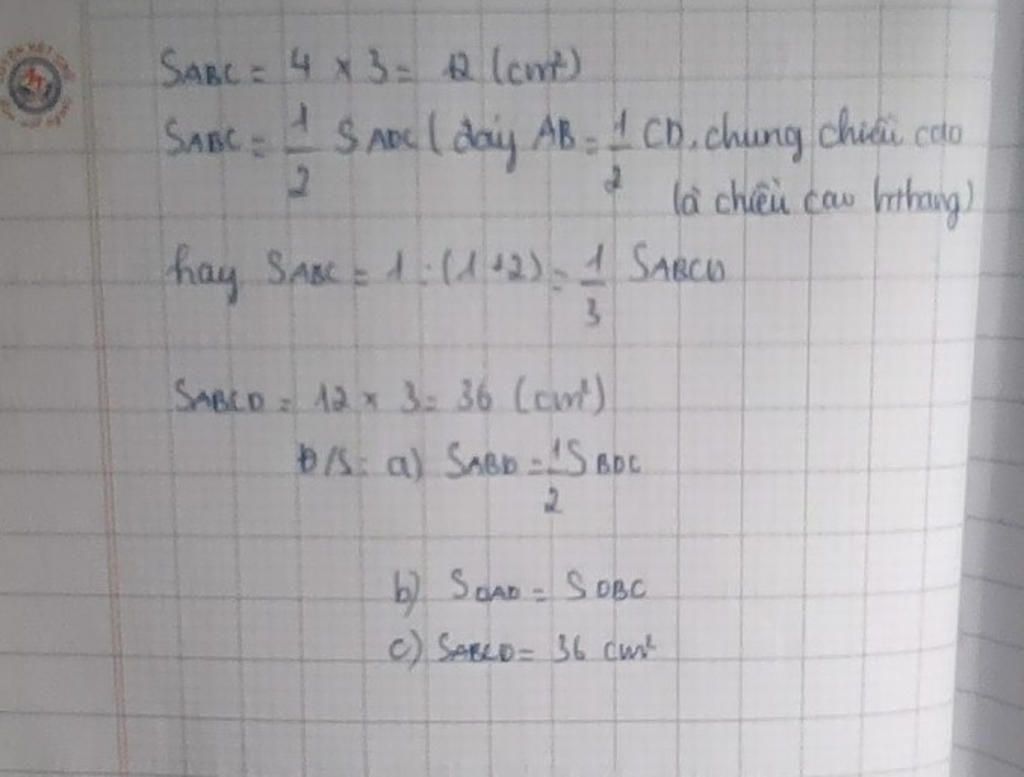 SABC = 4 × 3 = 12 (cm²)
SABC = 1/2 SADC (đáy AB = 1/2 CD, chung chiều cao
là chiều cao hthang)
hay SABC = 1 : (1+2) = 1/3 SABCD
SABCD = 12 × 3 = 36 (cm²)
Đ/S: a) SABD = 1/2 SBDC
b) SOAD = SOBC
c) SABCD = 36 cm²